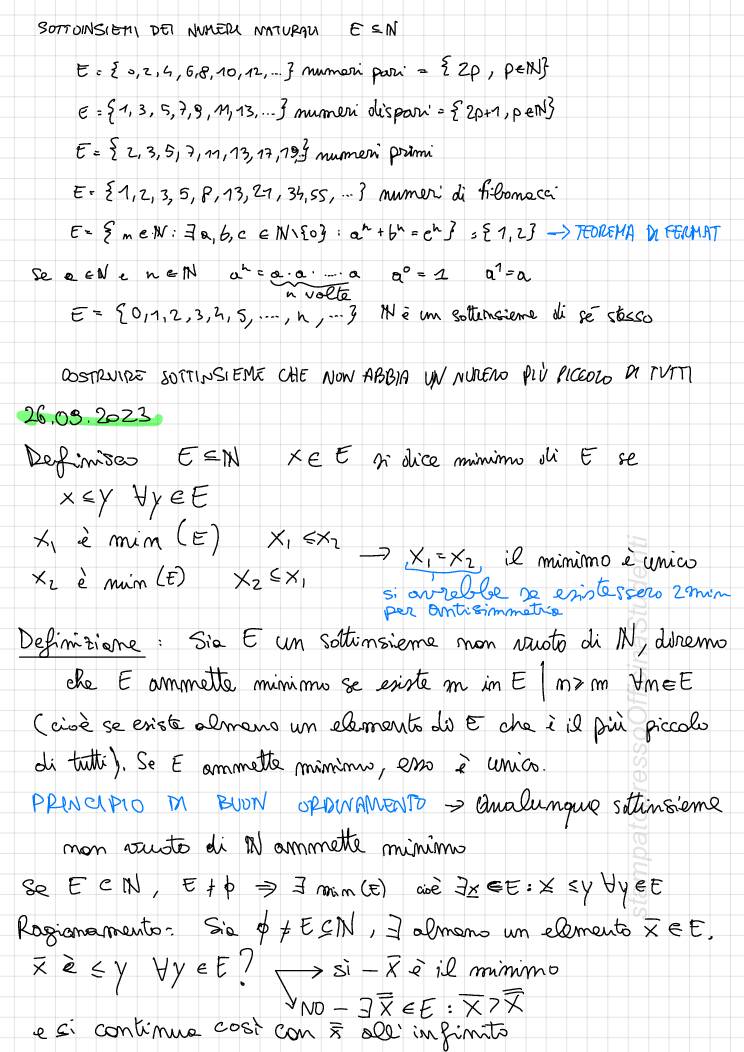 SOTTOINSIEMI DEI NUMERI NATURALI E ⊆ ℕ
E = { 0,2,4,6,8,10,12,...} numeri pari = { 2p , p∈ℕ}
E = {1, 3, 5,7,9, 11,13,...} numeri dispari = {2p+1, p∈ℕ}
E = { 2,3,5,7,11,13,17,19,} numeri primi
E = {1,2,3,5,8,13,21,34,55, ...} numeri di fibonacci
E = { n∈ℕ : ∃ a,b,c ∈ ℕ\{0} : aⁿ + bⁿ = cⁿ } = {1,2} → TEOREMA DI FERMAT
Se a∈ℕ e n∈ℕ aⁿ = a·a·...·a a⁰ = 1 a¹ = a
n volte
E = {0,1,2,3,4,5,...., n ,...} ℕ è un sottinsieme di sé stesso
COSTRUIRE SOTTINSIEME CHE NON ABBIA UN NUMERO PIÙ PICCOLO DI TUTTI
26.09.2023
Definisco E ⊆ ℕ x ∈ E si dice minimo di E se
x ≤ y ∀y ∈ E
x₁ è min (E) x₁ ≤ x₂ → x₁ = x₂ il minimo è unico
x₂ è min (E) x₂ ≤ x₁
si avrebbe se esistessero 2 min
per antisimmetria
Definizione : Sia E un sottinsieme non vuoto di ℕ, diremo
che E ammette minimo se esiste m in E | n ≥ m ∀n∈E
(cioè se esiste almeno un elemento di E che è il più piccolo
di tutti). Se E ammette minimo, esso è unico.
PRINCIPIO DI BUON ORDINAMENTO → Qualunque sottinsieme
non vuoto di ℕ ammette minimo
Se E ⊂ ℕ, E ≠ ϕ ⇒ ∃ min(E) cioè ∃x ∈ E : x ≤ y ∀y ∈ E
Ragionamento: Sia ϕ ≠ E ⊆ ℕ , ∃ almeno un elemento x̄ ∈ E.
x̄ è ≤ y ∀y ∈ E ? → sì - x̄ è il minimo
↘ NO - ∃ x̿ ∈ E : x̄ > x̿
e si continua così con x̿ all'infinito